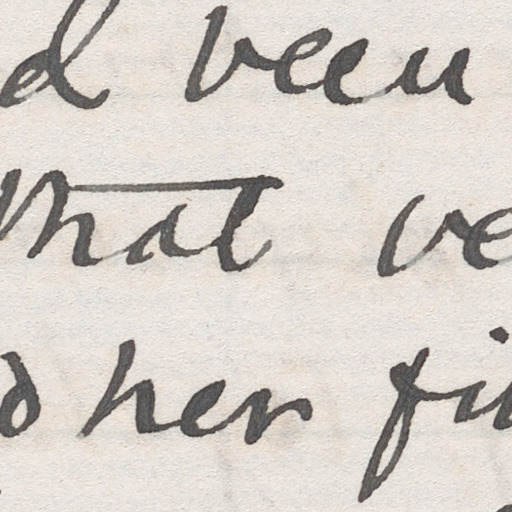 d been
that ve
d her fi